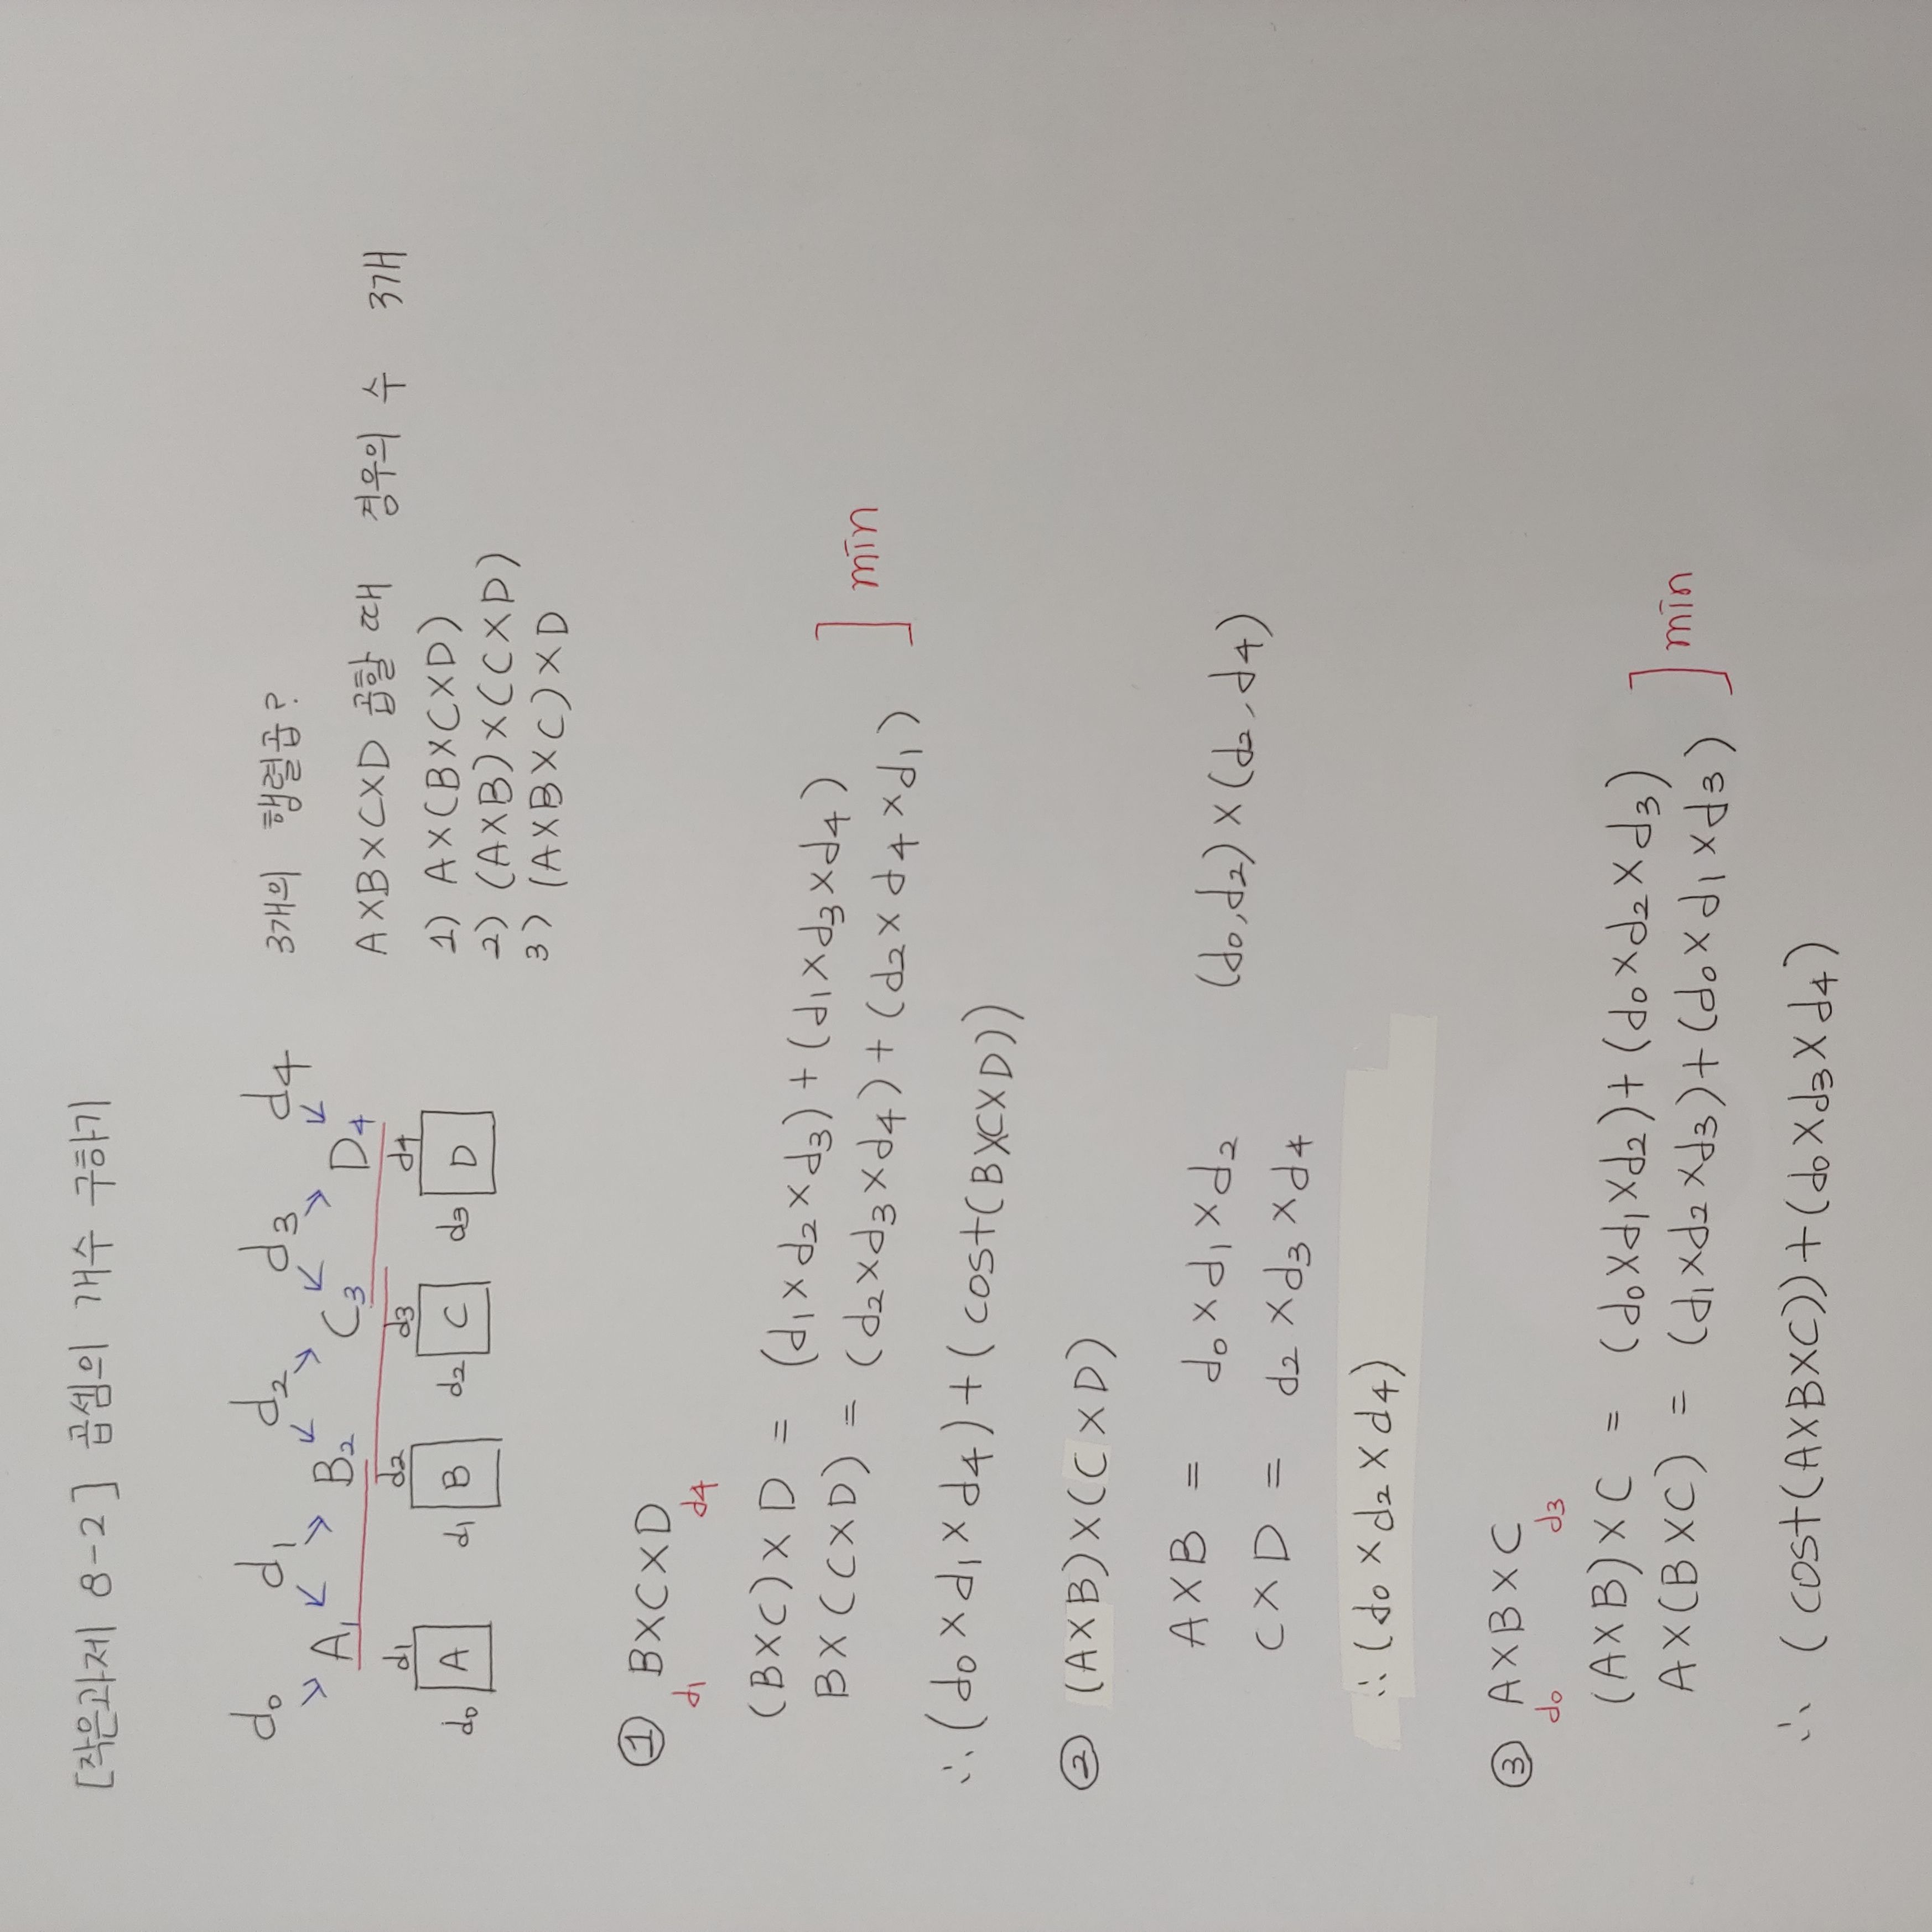 [작은과제 8-2] 곱셈의 개수 구하기
d₀ d₁ d₂ d₃ d₄
A₁ B₂ C₃ D₄
d₁ d₂ d₃ d₄
d₀ A d₁ B d₂ C d₃ D
3개의 행렬곱?
A×B×C×D 곱할 때 경우의 수 3개
1) A×(B×C×D)
2) (A×B)×(C×D)
3) (A×B×C)×D
① B×C×D
d₁ d₄
(B×C)×D = (d₁×d₂×d₃)+(d₁×d₃×d₄)
B×(C×D) = (d₂×d₃×d₄)+(d₂×d₄×d₁)
] min
∴(d₀×d₁×d₄)+(cost(B×C×D))
② (A×B)×(C×D)
A×B = d₀×d₁×d₂ (d₀,d₂)×(d₂,d₄)
C×D = d₂×d₃×d₄
∴(d₀×d₂×d₄)
③ A×B×C
d₀ d₃
(A×B)×C = (d₀×d₁×d₂)+(d₀×d₂×d₃)
A×(B×C) = (d₁×d₂×d₃)+(d₀×d₁×d₃)
] min
∴ (cost(A×B×C))+(d₀×d₃×d₄)